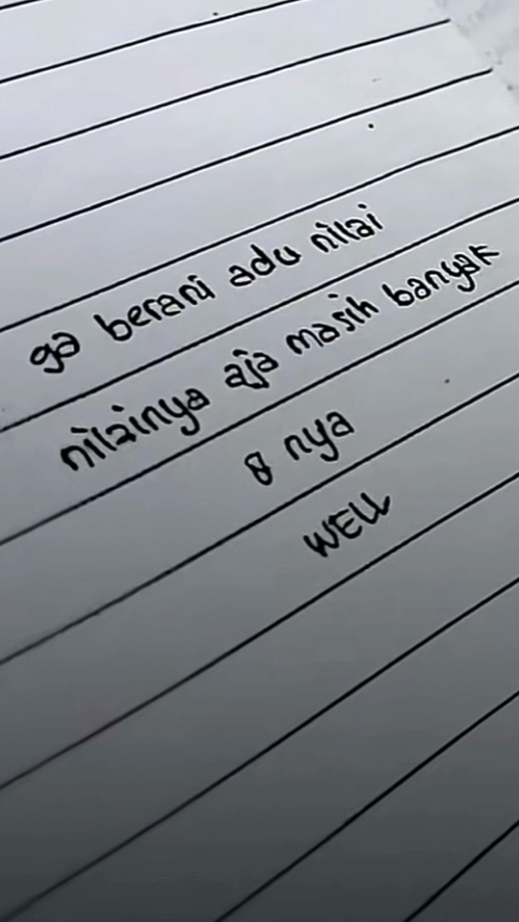 ga berani adu nilai
nilainya aja masih banyak
8 nya
WELL